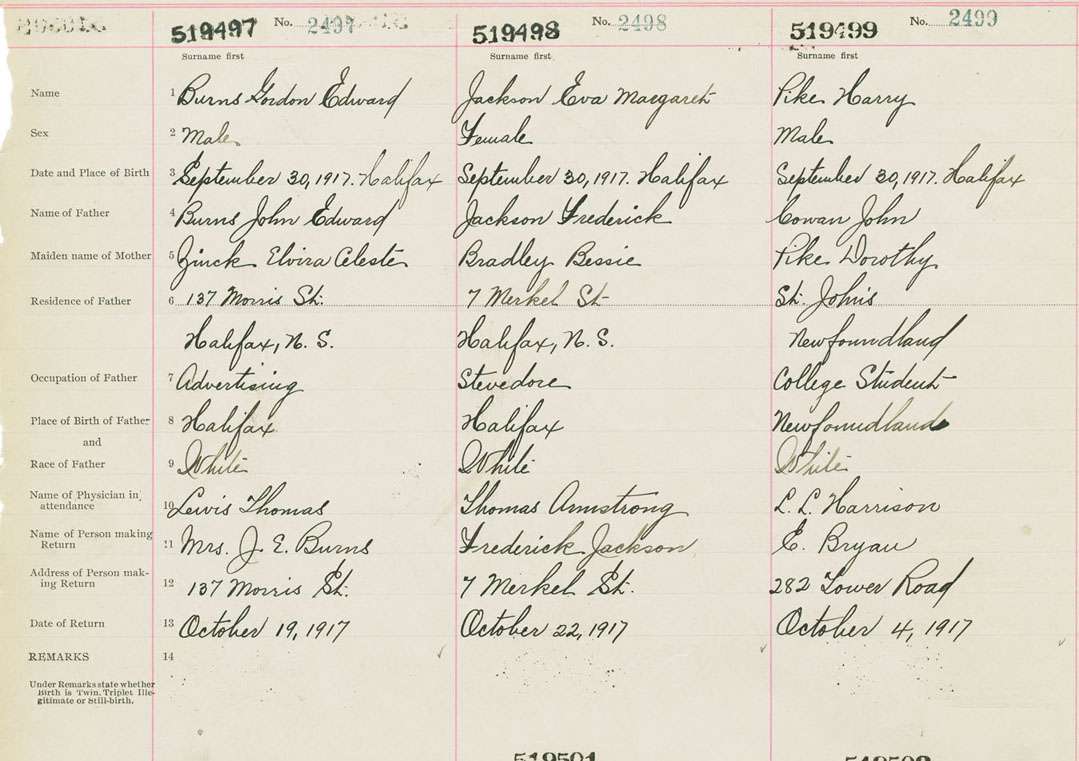 519497 No. 2497 519498 No. 2498 519499 No. 2499
Surname first Surname first Surname first
Name 1 Burns Gordon Edward Jackson Eva Margaret Pike Harry
Sex 2 Male Female Male
Date and Place of Birth 3 September 30, 1917. Halifax September 30, 1917. Halifax September 30, 1917. Halifax
Name of Father 4 Burns John Edward Jackson Frederick Cowan John
Maiden name of Mother 5 Zinck Elvira Celeste Bradley Bessie Pike Dorothy
Residence of Father 6 137 Morris St. 7 Merkel St St. John's
Halifax, N. S. Halifax, N. S. Newfoundland
Occupation of Father 7 Advertising Stevedore College Student
Place of Birth of Father 8 Halifax Halifax Newfoundland
and
Race of Father 9 White White White
Name of Physician in
attendance 10 Lewis Thomas Thomas Armstrong L. L. Harrison
Name of Person making
Return 11 Mrs. J. E. Burns Frederick Jackson E. Bryan
Address of Person mak-
ing Return 12 137 Morris St. 7 Merkel St. 282 Tower Road
Date of Return 13 October 19, 1917 October 22, 1917 October 4, 1917
REMARKS 14
Under Remarks state whether
Birth is Twin, Triplet Ille-
gitimate or Still-birth.
519501